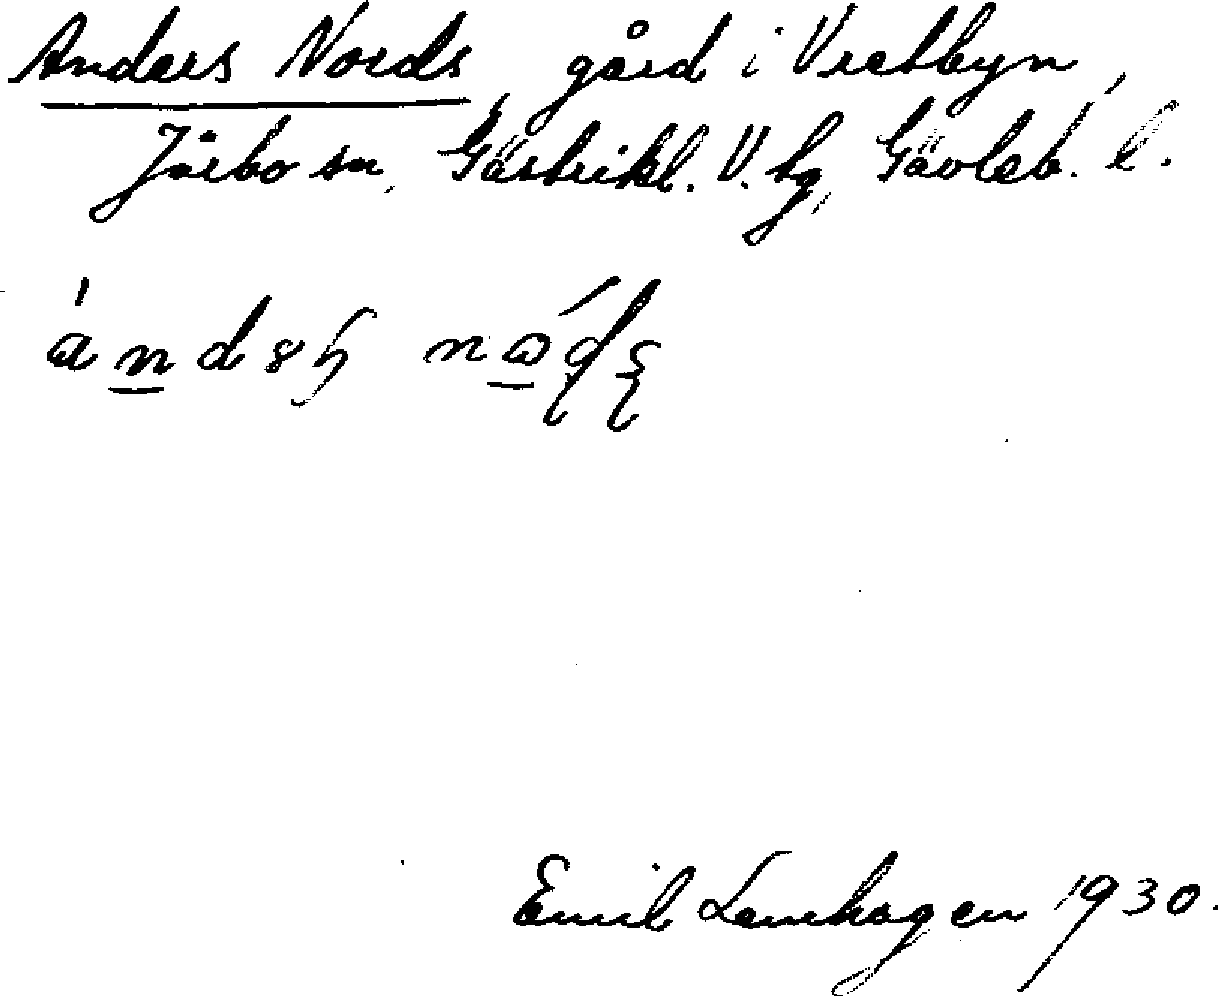 Anders Nords, gård i Vretbyn,
Järbo sn, Gästrikl. V. tg, Gävleb. l.
Emil Lenhagen 1930.